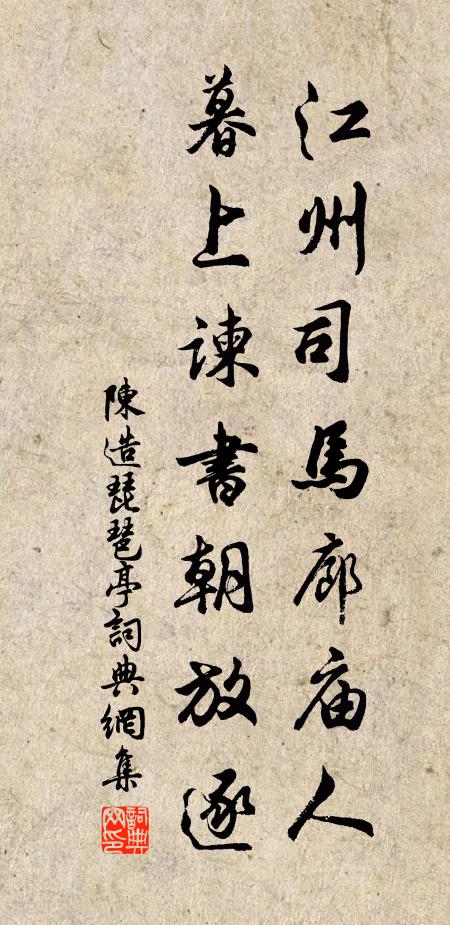 江州司馬廊庙人
暮上諫書朝放逐
陳造琵琶亭詞典網集
詞典
网印